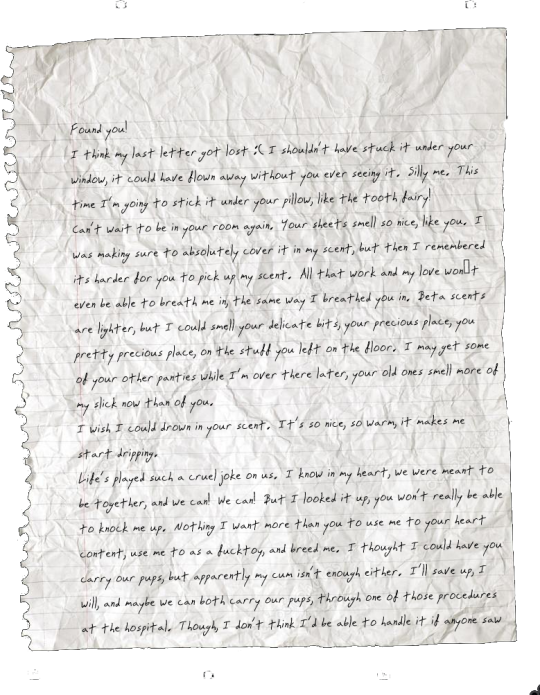 Found you!
I think my last letter got lost :( I shouldn't have stuck it under your
window, it could have flown away without you ever seeing it. Silly me. This
time I'm going to stick it under your pillow, like the tooth fairy!
Can't wait to be in your room again. Your sheets smell so nice, like you. I
was making sure to absolutely cover it in my scent, but then I remembered
its harder for you to pick up my scent. All that work and my love won▯t
even be able to breath me in, the same way I breathed you in. Beta scents
are lighter, but I could smell your delicate bits, your precious place, you
pretty precious place, on the stuff you left on the floor. I may get some
of your other panties while I'm over there later, your old ones smell more of
my slick now than of you.
I wish I could drown in your scent. It's so nice, so warm, it makes me
start dripping.
Life's played such a cruel joke on us. I know in my heart, we were meant to
be together, and we can! We can! But I looked it up, you won't really be able
to knock me up. Nothing I want more than you to use me to your heart
content, use me to as a fucktoy, and breed me. I thought I could have you
carry our pups, but apparently my cum isn't enough either. I'll save up, I
will, and maybe we can both carry our pups, through one of those procedures
at the hospital. Though, I don't think I'd be able to handle it if anyone saw